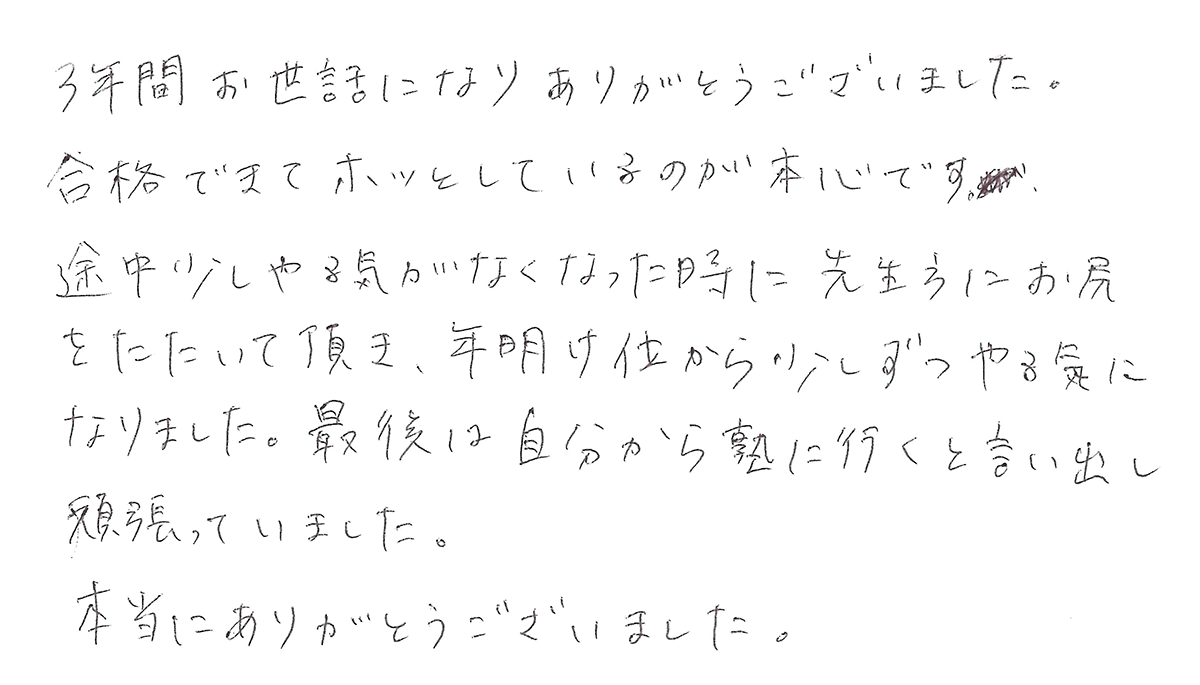 3年間お世話になりありがとうございました。
合格できてホッとしているのが本心です。
途中少しやる気がなくなった時に先生方にお尻
をたたいて頂き、年明け位から少しずつやる気に
なりました。最後は自分から塾に行くと言い出し
頑張っていました。
本当にありがとうございました。